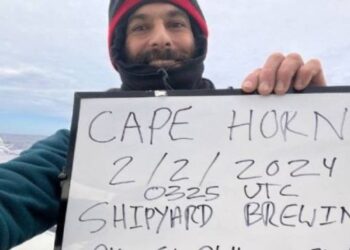 CAPE HORN
2/2/2024
0325 UTC
SHIPYARD BREWIN